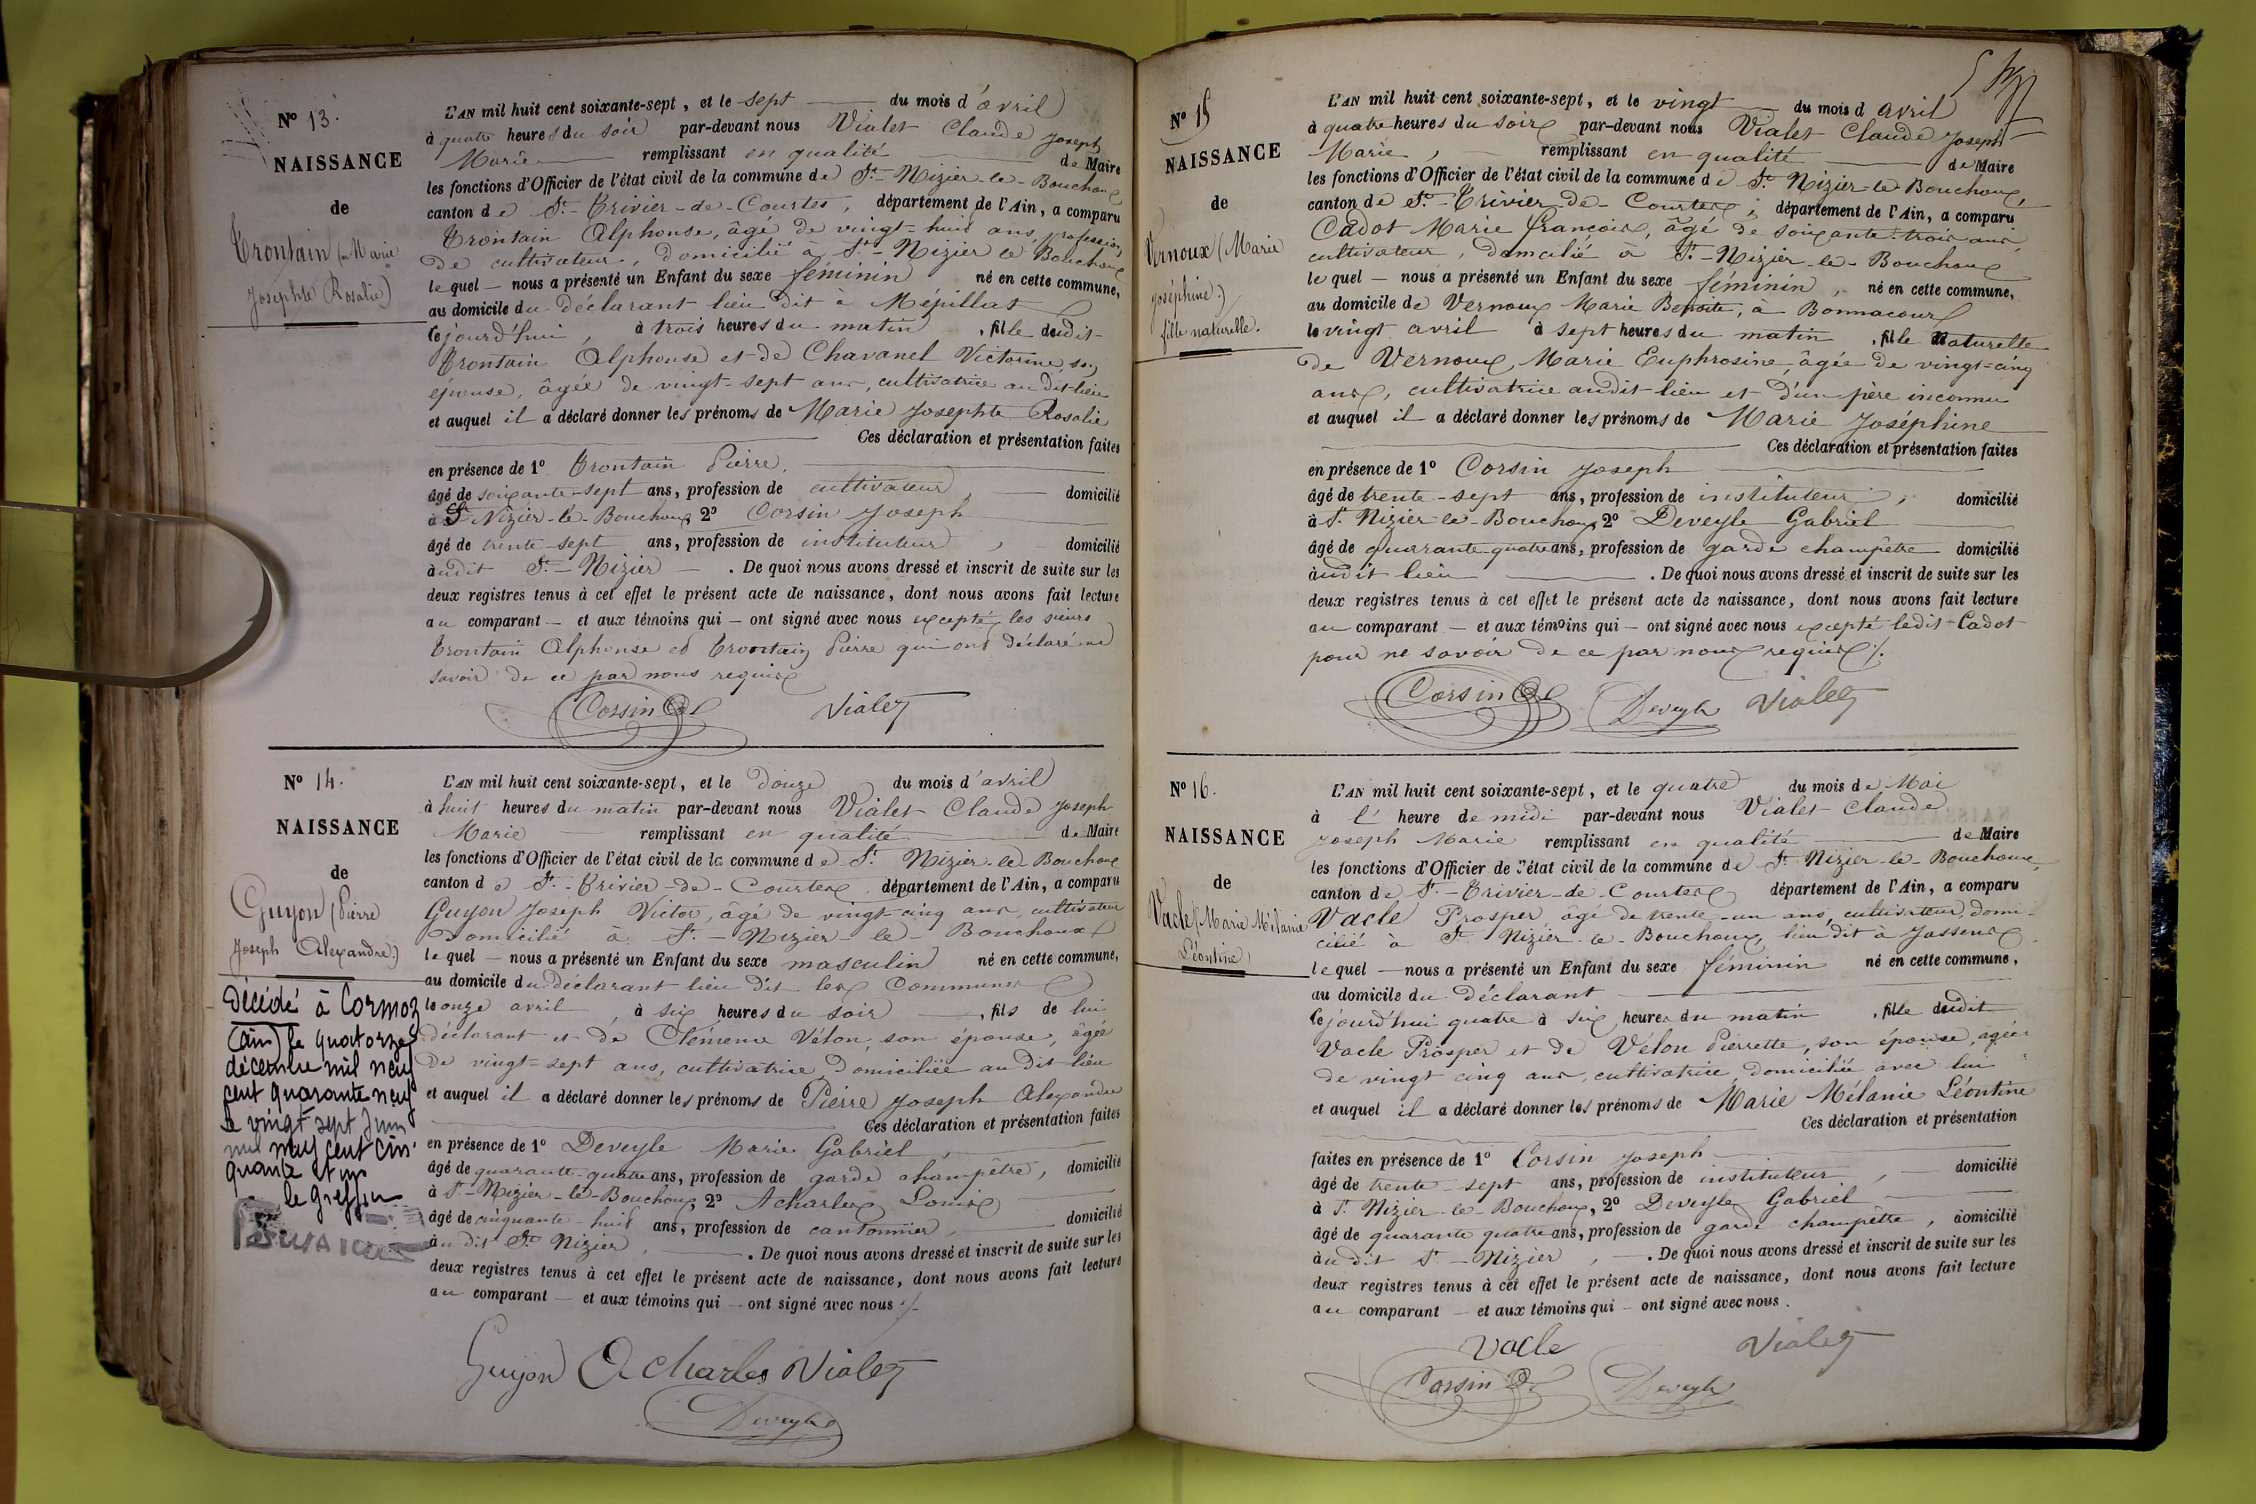 Nº 13.
NAISSANCE
de
Trontain (Marie
Josephte Rosalie)
L'AN mil huit cent soixante-sept, et le sept du mois d'avril
à quatre heures du soir par-devant nous Vialet Claude Joseph
Marie remplissant en qualité de Maire
les fonctions d'Officier de l'état civil de la commune de St-Nizier-le-Bouchoux
canton de St-Trivier-de-Courtes, département de l'Ain, a comparu
Trontain Alphonse, âgé de vingt-huit ans, profession
de cultivateur, domicilié à St-Nizier le Bouchoux
lequel nous a présenté un Enfant du sexe féminin né en cette commune,
au domicile du déclarant lieu dit à Mépillat
cejourd'hui, à trois heures du matin, fille dudit
Trontain Alphonse et de Chavanel Victorine, son
épouse, âgée de vingt-sept ans, cultivatrice audit lieu
et auquel il a déclaré donner les prénoms de Marie Josephte Rosalie
Ces déclaration et présentation faites
en présence de 1º Trontain Pierre,
âgé de soixante-sept ans, profession de cultivateur, domicilié
à St Nizier-le-Bouchoux, 2º Corsin Joseph
âgé de trente-sept ans, profession de instituteur, domicilié
audit St-Nizier. De quoi nous avons dressé et inscrit de suite sur les
deux registres tenus à cet effet le présent acte de naissance, dont nous avons fait lecture
au comparant et aux témoins qui ont signé avec nous excepté les sieurs
Trontain Alphonse et Trontain Pierre qui ont déclaré ne
savoir de ce par nous requis
Corsin Vialet
Nº 14.
NAISSANCE
de
Guyon (Pierre
Joseph Alexandre)
Décédé à Cormoz
(ain) le quatorze
décembre mil neuf
cent quarante neuf
le vingt sept Juin
mil neuf cent cin-
quante et un
le Greffier
L'AN mil huit cent soixante-sept, et le douze du mois d'avril
à huit heures du matin par-devant nous Vialet Claude Joseph
Marie remplissant en qualité de Maire
les fonctions d'Officier de l'état civil de la commune de St. Nizier-le-Bouchoux
canton de St.-Trivier-de-Courtes département de l'Ain, a comparu
Guyon Joseph Victor, âgé de vingt-cinq ans, cultivateur
domicilié à St.-Nizier-le-Bouchoux
lequel nous a présenté un Enfant du sexe masculin né en cette commune,
au domicile du déclarant lieu dit les Communes
le onze avril, à six heures du soir, fils de lui
déclarant et de Clémence Vélon, son épouse, âgée
de vingt-sept ans, cultivatrice domiciliée au dit lieu
et auquel il a déclaré donner les prénoms de Pierre Joseph Alexandre
Ces déclaration et présentation faites
en présence de 1º Deveyle Marie Gabriel,
âgé de quarante-quatre ans, profession de garde champêtre, domicilié
à St-Nizier-le-Bouchoux, 2º Acharles Louis
âgé de cinquante-huit ans, profession de cantonnier, domicilié
audit St. Nizier. De quoi nous avons dressé et inscrit de suite sur les
deux registres tenus à cet effet le présent acte de naissance, dont nous avons fait lecture
au comparant et aux témoins qui ont signé avec nous
Guyon Acharles Vialet
Deveyle
Nº 15
NAISSANCE
de
Vernoux (Marie
Joséphine)
fille naturelle.
L'AN mil huit cent soixante-sept, et le vingt du mois d avril
à quatre heures du soir par-devant nous Vialet Claude Joseph
Marie, remplissant en qualité de Maire
les fonctions d'Officier de l'état civil de la commune de St. Nizier-le-Bouchoux,
canton de St.-Trivier-de-Courtes, département de l'Ain, a comparu
Cadot Marie François, âgé de soixante-trois ans
cultivateur, domicilié à St.-Nizier-le-Bouchoux
lequel nous a présenté un Enfant du sexe féminin, né en cette commune,
au domicile de Vernoux Marie Benoite, à Bonnacour
le vingt avril à sept heures du matin, fille naturelle
de Vernoux Marie Euphrosine, âgée de vingt-cinq
ans, cultivatrice audit lieu et d'un père inconnu
et auquel il a déclaré donner les prénoms de Marie Joséphine
Ces déclaration et présentation faites
en présence de 1º Corsin Joseph
âgé de trente-sept ans, profession de instituteur, domicilié
à St. Nizier-le-Bouchoux, 2º Deveyle Gabriel
âgé de quarrante-quatre ans, profession de garde champêtre domicilié
audit lieu. De quoi nous avons dressé et inscrit de suite sur les
deux registres tenus à cet effet le présent acte de naissance, dont nous avons fait lecture
au comparant et aux témoins qui ont signé avec nous excepté ledit Cadot
pour ne savoir de ce par nous requis.
Corsin Deveyle Vialet
Nº 16.
NAISSANCE
de
Vacle (Marie Mélanie
Léontine)
L'AN mil huit cent soixante-sept, et le quatre du mois de Mai
à l' heure de midi par-devant nous Vialet Claude
Joseph Marie remplissant en qualité de Maire
les fonctions d'Officier de l'état civil de la commune de St. Nizier-le-Bouchoux,
canton de St.-Trivier-de-Courtes département de l'Ain, a comparu
Vacle Prosper, âgé de trente-un ans, cultivateur, domi-
cilié à St Nizier-le-Bouchoux, lieu dit à Jassens
lequel nous a présenté un Enfant du sexe féminin né en cette commune,
au domicile du déclarant
cejourd'hui quatre à six heures du matin, fille dudit
Vacle Prosper et de Vélon Pierrette, son épouse, agée
de vingt cinq ans, cultivatrice domiciliée avec lui
et auquel il a déclaré donner les prénoms de Marie Mélanie Léontine
Ces déclaration et présentation
faites en présence de 1º Corsin Joseph
âgé de trente-sept ans, profession de instituteur, domicilié
à St. Nizier-le-Bouchoux, 2º Deveyle Gabriel
âgé de quarante quatre ans, profession de garde champêtre, domicilié
audit St-Nizier,. De quoi nous avons dressé et inscrit de suite sur les
deux registres tenus à cet effet le présent acte de naissance, dont nous avons fait lecture
au comparant et aux témoins qui ont signé avec nous.
Vacle Vialet
Corsin Deveyle